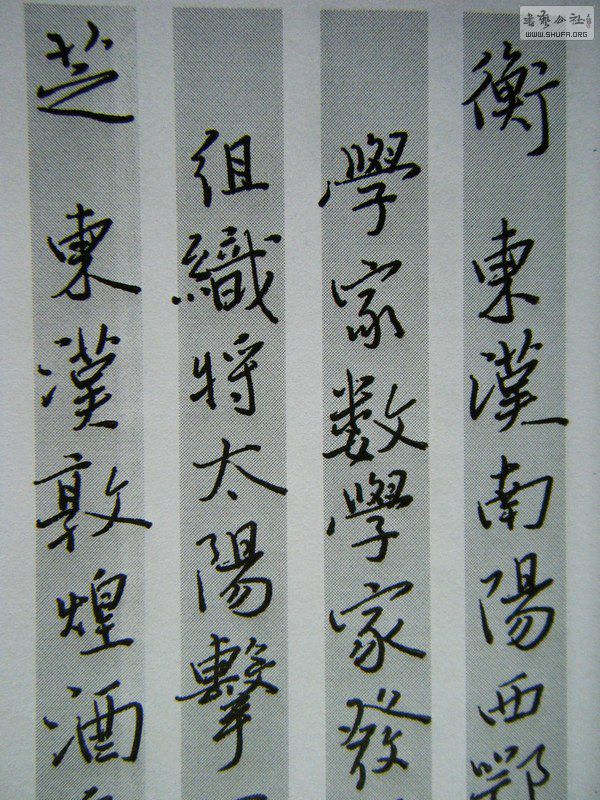 書藝公社
WWW.SHUFA.ORG
衡 東漢南陽西鄂
學家數學家發
組織將太陽擊
芝 東漢敦煌酒